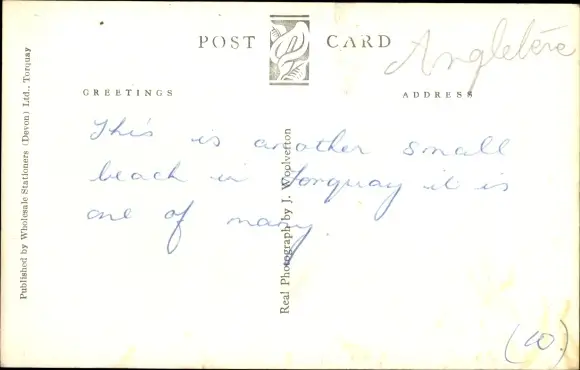 POST CARD
Angleterre
GREETINGS
ADDRESS
This is another small
beach in Torquay it is
one of many.
Published by Wholesale Stationers (Devon) Ltd., Torquay
Real Photograph by J. Woolverton
(10)